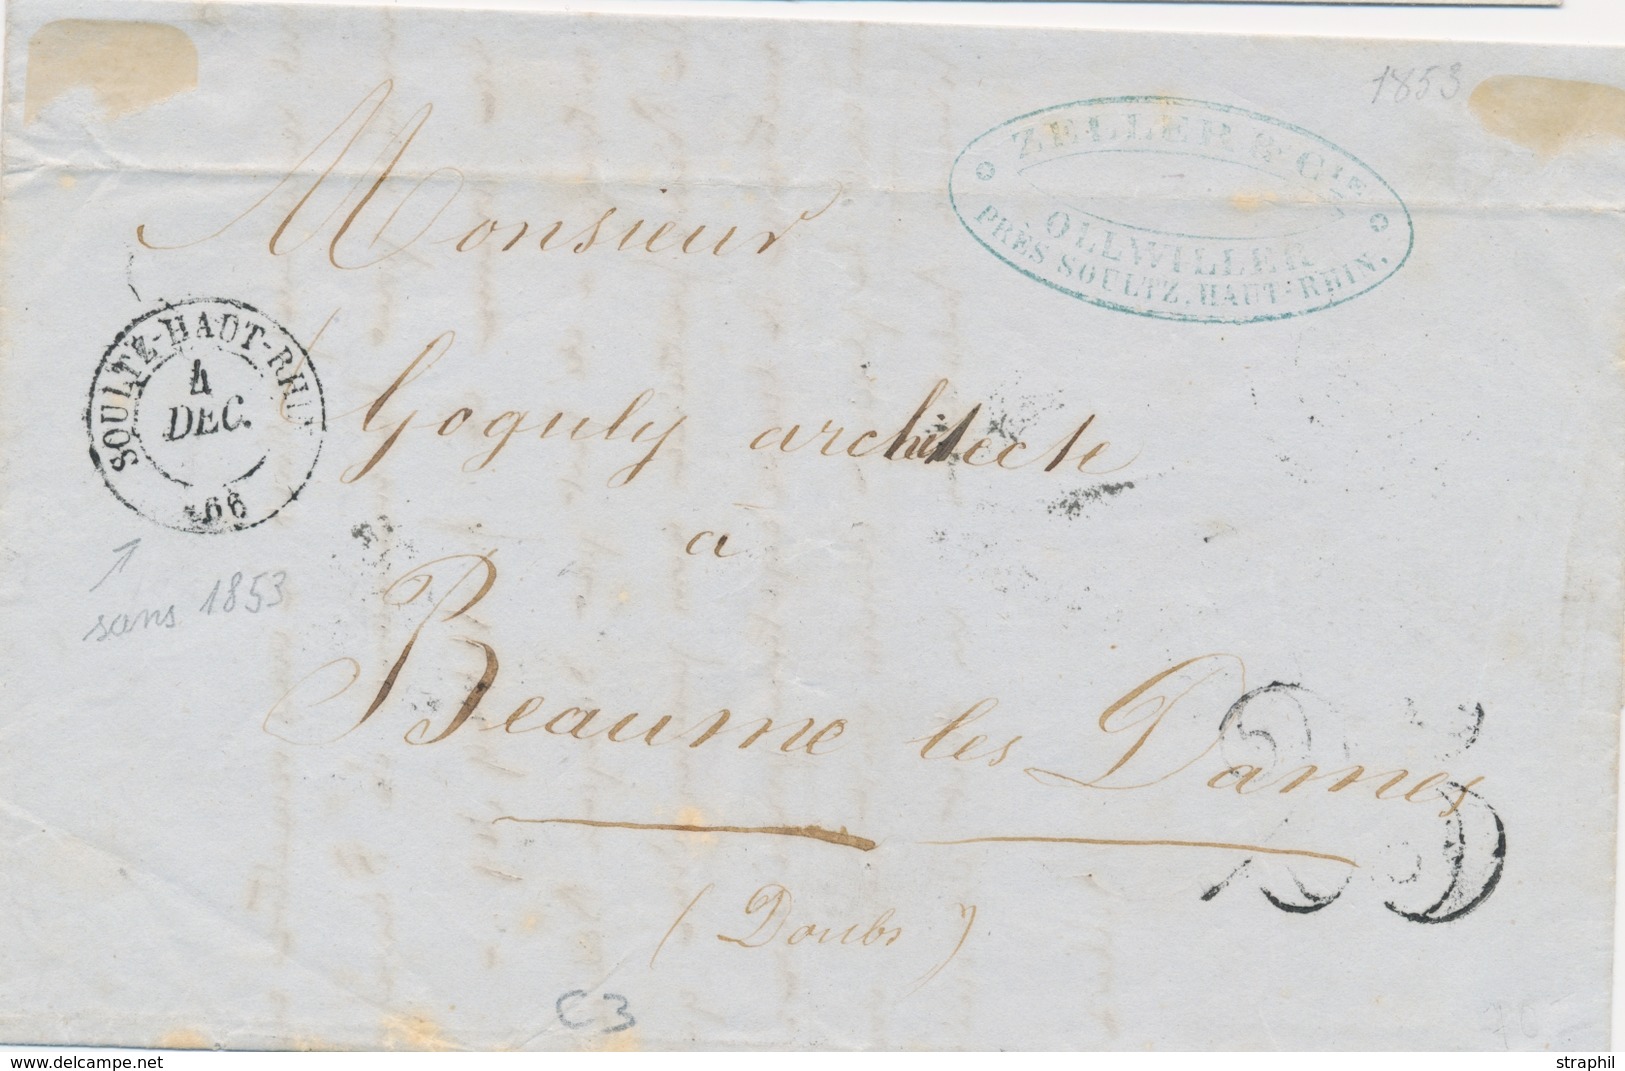 1853
ZELLER & CIE
OLLWILLER
PRÈS SOULTZ, HAUT-RHIN.
Monsieur
SOULTZ-HAUT-RHIN
4
DEC.
66
Goguly architecte
à
sans 1853
Beaume les Dames
25
(Doubs)
C3
70-
delcampe.net
straphil